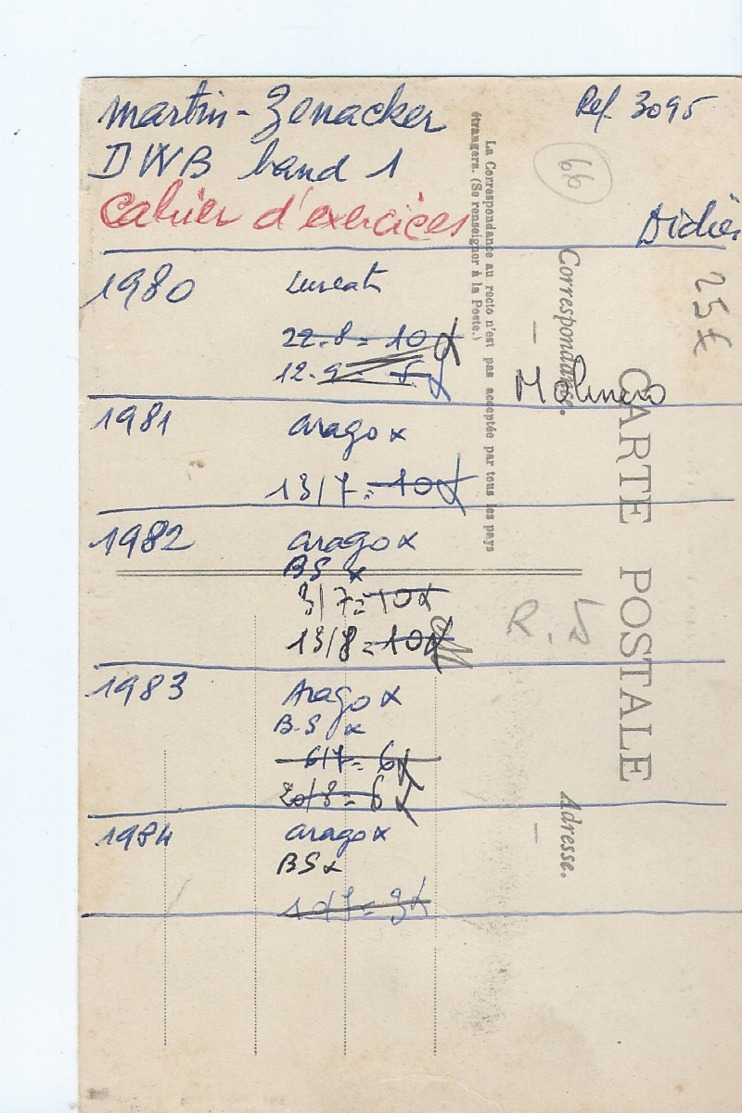 Martin-Zenacker
Ref. 3095
DWB band 1
66
Cahier d'exercices
Didier
25€
1980
Lurcat
22.8 = 10
12.9 =
Molinero
1981
arago x
13/7 = 10
1982
arago x
BS x
3/7 = 10x
13/8 = 10
R. 5
1983
Arago x
B.S x
6/7 = 6x
20/8 = 6
1984
arago x
BS x
CARTE POSTALE
Correspondance.
Adresse.
La Correspondance au recto n'est pas acceptée par tous les pays
étrangers. (Se renseigner à la Poste.)